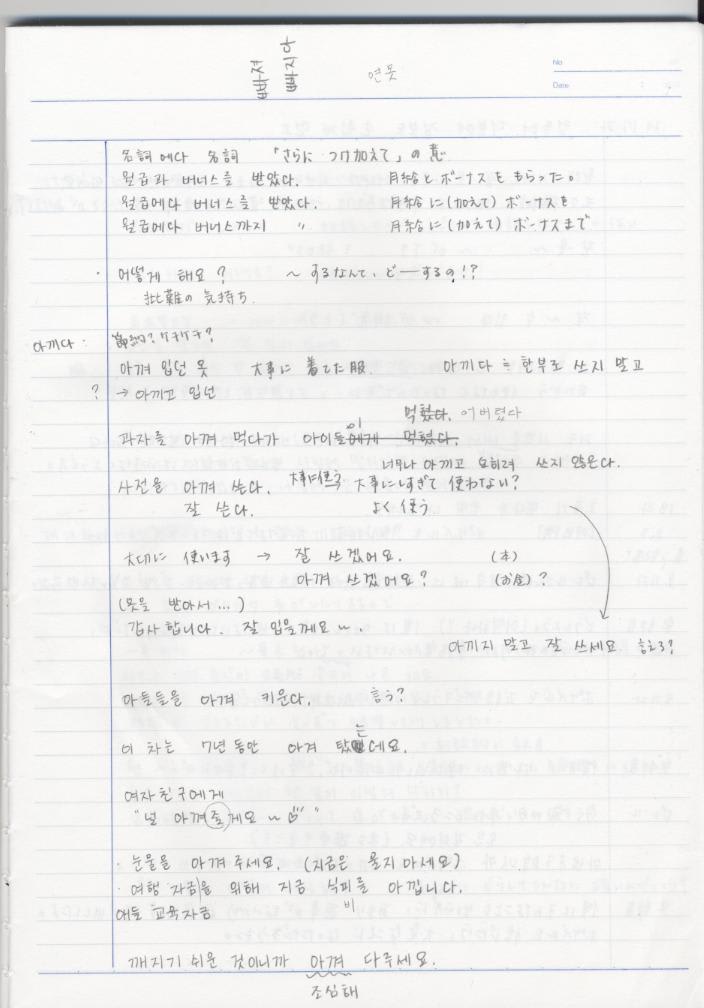 빠져
빠지
연못
No
Date
名詞에다 名詞 「さらに つけ加えて」の意
월급과 버너스를 받았다. 月給とボーナスをもらった。
월급에다 버너스를 받았다. 月給に(加えて)ボーナスを
월급에다 버너스까지 〃 月給に(加えて)ボーナスまで
· 어떻게 해요? ~するなんて、どーするの!?
批難の気持ち
아끼다: 節約? ケチケチ?
아껴 입던 옷 大事に着てた服 아끼다 ≒ 한부로 쓰지 말고
? → 아끼고 입던
먹혔다. 어버렸다
과자를 아껴 먹다가 아이들에게 먹혔다.
이
너무나 아끼고 오히려 쓰지 않은다.
사전을 아껴 쓴다. 大事に使う 大事にしすぎて使わない?
잘 쓴다. よく使う
大切に使います → 잘 쓰겠어요. (本)
아껴 쓰겠어요? (お金)?
(옷을 받아서...)
감사합니다. 잘 입을께요~.
아끼지 말고 잘 쓰세요 言える?
아들들을 아껴 키운다. 言う?
는
이 차는 7년동안 아껴 탔데요.
여자친구에게
"널 아껴줄게요~♡"
· 눈물을 아껴주세요. (지금은 울지마세요)
· 여행 자금을 위해 지금 식피를 아낍니다.
애들 교육자금 비
깨지기 쉬운 것이니까 아껴 다주세요.
조심해